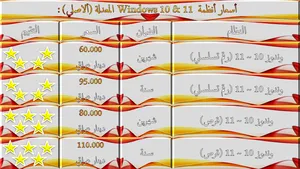 أسعار أنظمة Windows 10 & 11 المعدلة (الأصلي) :
النظام الضمان السعر التقييم
ويندوز 10 ~ 11 (رقم تسلسلي) شهرين 60.000 دينار عراقي
ويندوز 10 ~ 11 (رقم تسلسلي) سنة 95.000 دينار عراقي
ويندوز 10 ~ 11 (قرص) شهرين 80.000 دينار عراقي
ويندوز 10 ~ 11 (قرص) سنة 110.000 دينار عراقي